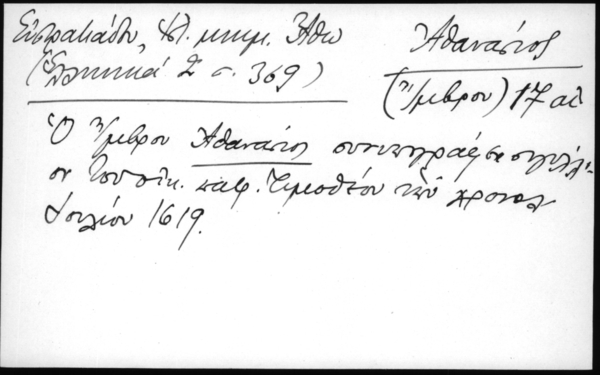 Εὐστρατιάδου, Ἁγ. μνημ. Ἄθω
(Ἑλληνικά 2 σ. 369)
Ἀθανάσιος
(Ἴμβρου) 17 αἰ
Ὁ Ἴμβρου Ἀθανάσιος συνυπογράφει σιγίλλι-
ον τοῦ οἰκ. πατρ. Τιμοθέου ὑπὸ χρονολ.
Ἰουλίου 1619.